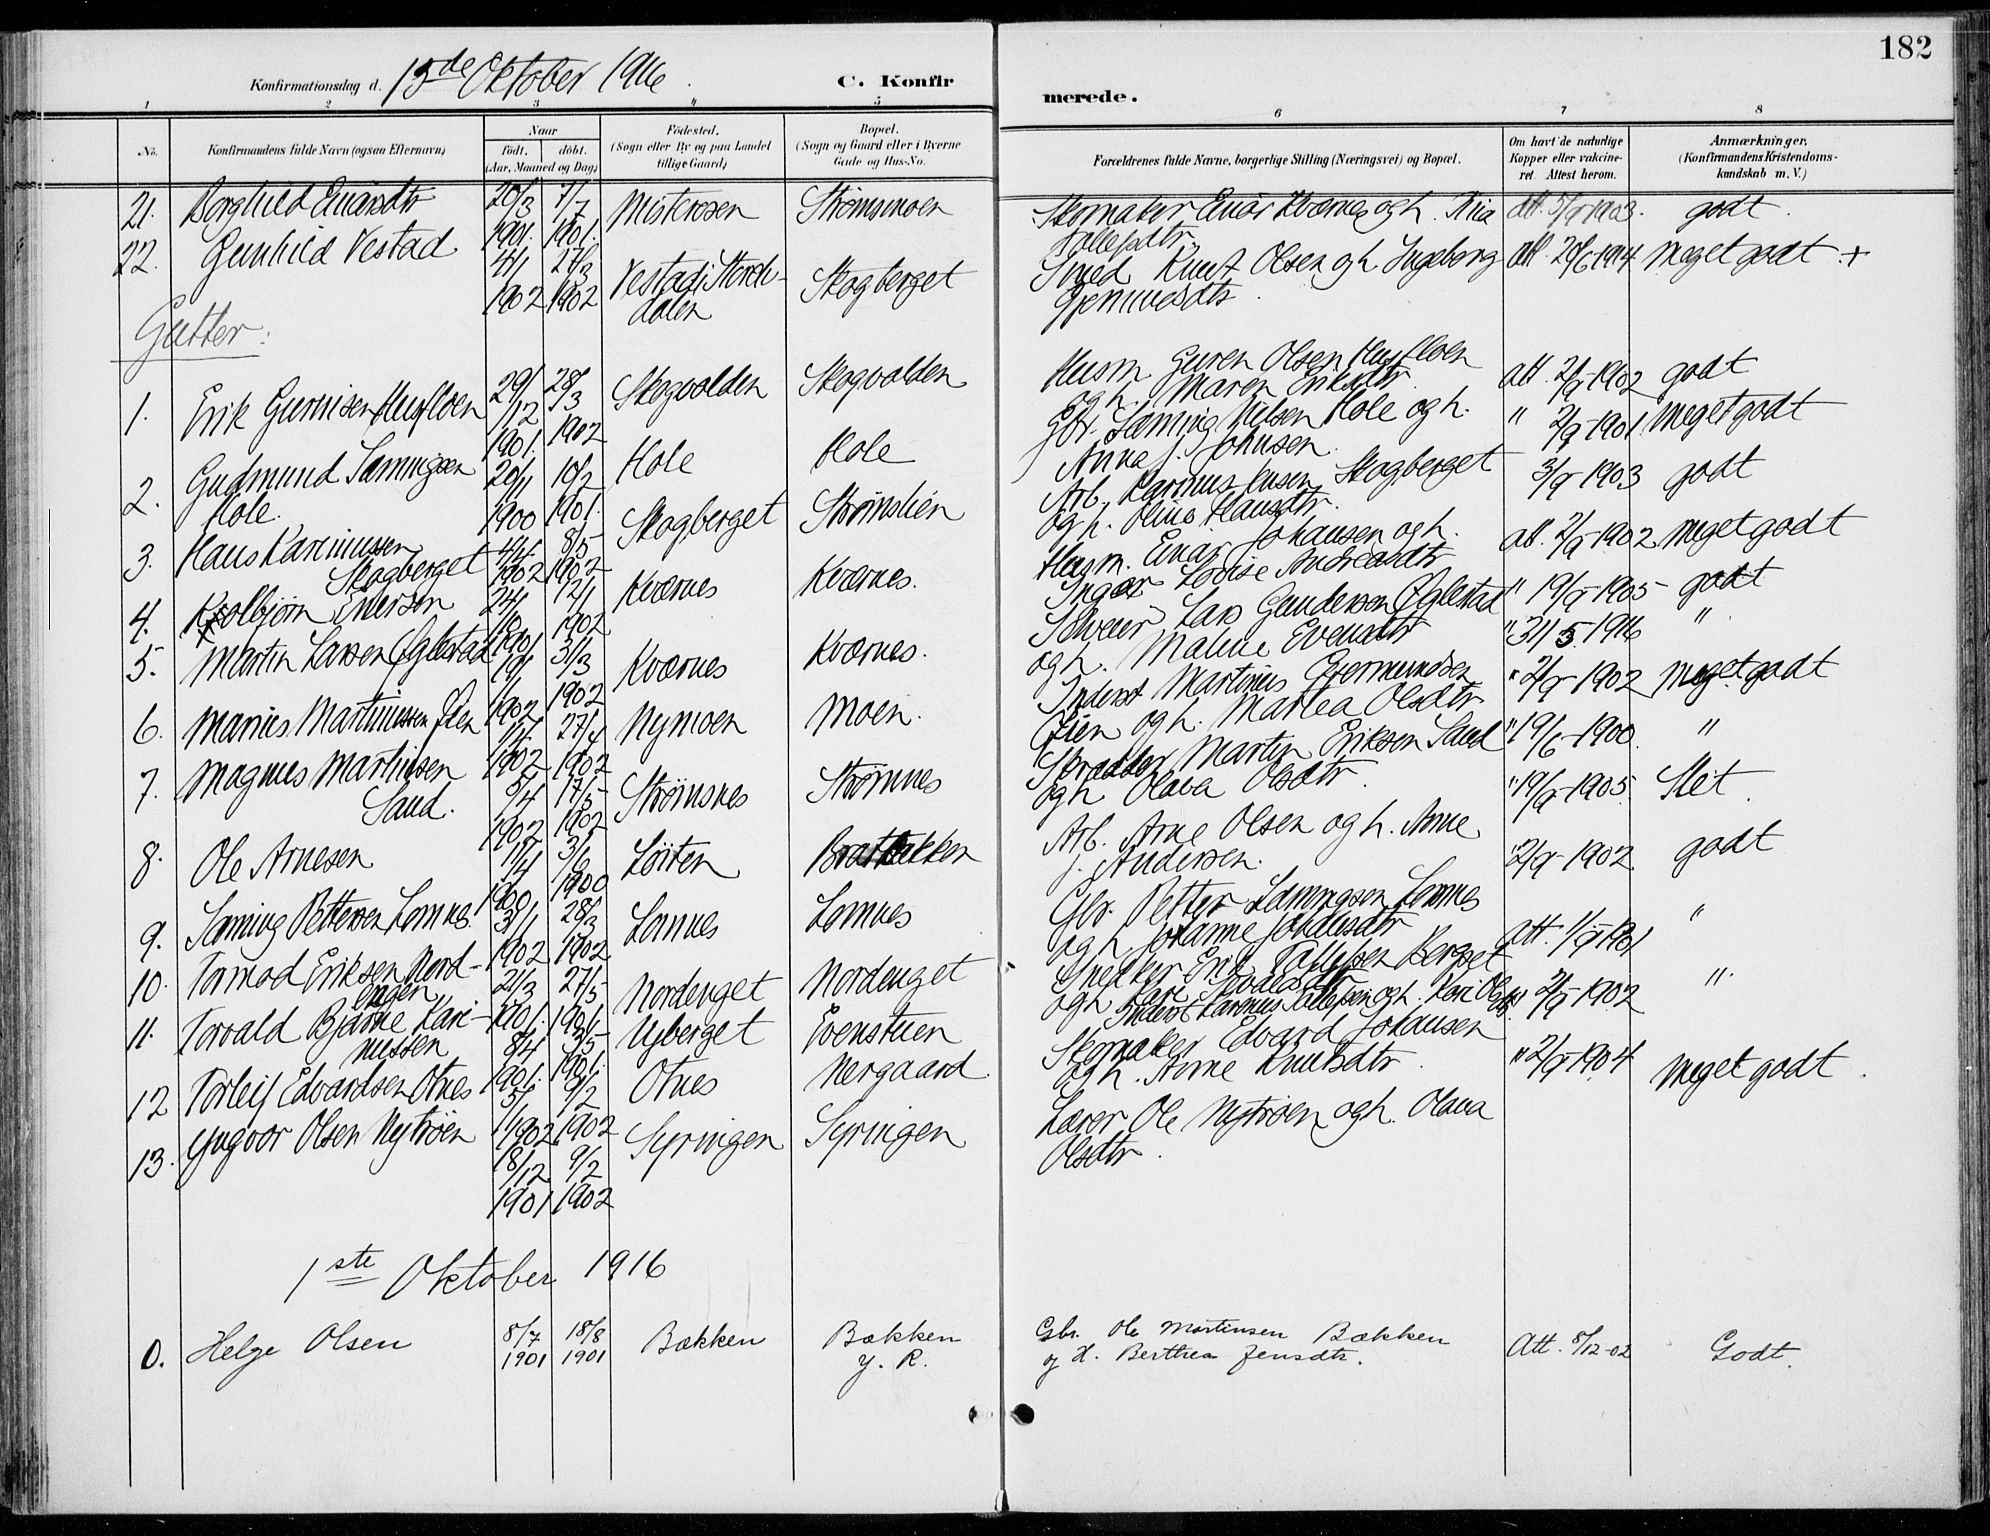 182
Konfirmationsdag d. 15de Oktober 1916. C. Konfirmerede.
1 2 3 4 5 6 7 8
No.
Konfirmandens fulde Navn (ogsaa Efternavn)
Naar
født. døbt.
(Aar, Maaned og Dag)
Fødested.
(Sogn eller By og paa Landet tillige Gaard)
Bopæl.
(Sogn og Gaard eller i Byerne Gade og Hus-No.
Forældrenes fulde Navne, borgerlige Stilling (Næringsvei) og Bopæl.
Om havt de naturlige Kopper eller vakcineret. Attest herom.
Anmærkninger.
(Konfirmandens Kristendomskundskab m. V.)
21. Borghild Einarsdtr 20/3 1901. 7/7 1901. Misterosen Strømsmoen Skomaker Einar Kværnes og h. att. 5/9 1903. godt.
22. Gunhild Vestad 4/1 1902 27/3 1902 Vestad i Storelvdalen Skogberget Smed Knut Olsen og h. Ingeborg att. 20/6 1914 Meget godt +
Gutter:
1. Erik Gurnisen Husfloen 29/12 1901. 28/3 1902 Skogvolden Skogvolden Husm. Guren Olsen Husfloen og h. Maren Eriksdtr. att. 2/9-1902 godt
2. Gudmund Sæmingsen Hole. 20/11 1900 10/2 1901. Hole Hole Gbr. Sæming Nilsen Hole og h. Anna J. Johnsen. " 2/9-1901. Meget godt
3. Hans Karinussen Skogberget 4/4 1902 8/5 1902 Skogberget Strømslien Arb. Karinus Skogberget og h. Oline Hansdtr. 3/9 1903 godt
4. Kolbjørn Einersen 24/10 1901 12/1 1902 Kværnes Kværnes. Husm. Einar Johansen og h. Inger Lovise Andreasdtr att. 2/9-1902. Meget godt
5. Martin Larsen Øglestad 19/1 1902 31/3 1902 Kværnes Kværnes. Lars Gundersen Øglestad og h. Maline Evensdtr " 19/9-1905 godt
" 31/5. 1916 "
6. Marius Martinussen Øien 1/4 1902 27/4 1902 Nymoen Moen. Inderst Martinus Gjermundsen Øien og h. Martea Olsdtr " 2/9-1902 Meget godt
7. Magnus Martinsen Sand. 5/4 1902 17/5 1902 Strømsnes Strømnes Skrædder Martin Eriksen Sand og h Olava Olsdtr. " 19/6-1900. "
8. Ole Arnesen 11/4 1900 3/6 1900 Løiten Bratbakken Arb. Arne Olsen og h. Anne J. Andersen. " 19/9-1905. Slet.
9. Sæming Pettersen Lomnes. 31/1 1902 28/3 1902 Lomnes Lomnes Gbr. Petter Sæmingsen Lomnes og h. Johanne Johnsdtr " 2/9-1902 godt
10. Tormod Eriksen Nordengen 21/3 1901. 27/5 1901. Nordenget Nordenget Snekker Erik Tallefsen Bergset og h Kari att. 1/9 1901 "
11. Torvald Bjarne Karinussen 8/4 1901. 3/5 1901. Nyberget Evenstuen Inderst Karinus Tollefsen og h. Kari Olsdtr. " 2/9-1902 "
12 Torleif Edvardsen Otnes 5/1 1902 9/2 1902 Otnes Nergaard. Skomaker Edvard Johansen og h. Anne Knutsdtr. " 2/9-1904 Meget godt.
13. Yngvar Olsen Nystrøen 18/12 1901 9/2 1902 Syringen Syringen Lærer Ole Nystrøen og h. Olava Olsdtr.
1ste Oktober 1916
0. Helge Olsen 8/7 1901 18/8 1901 Bækken Bækken Y. R. Gbr. Ole Martinsen Bækken og H. Berthea Jensdtr. Att. 8/12-02 Godt.